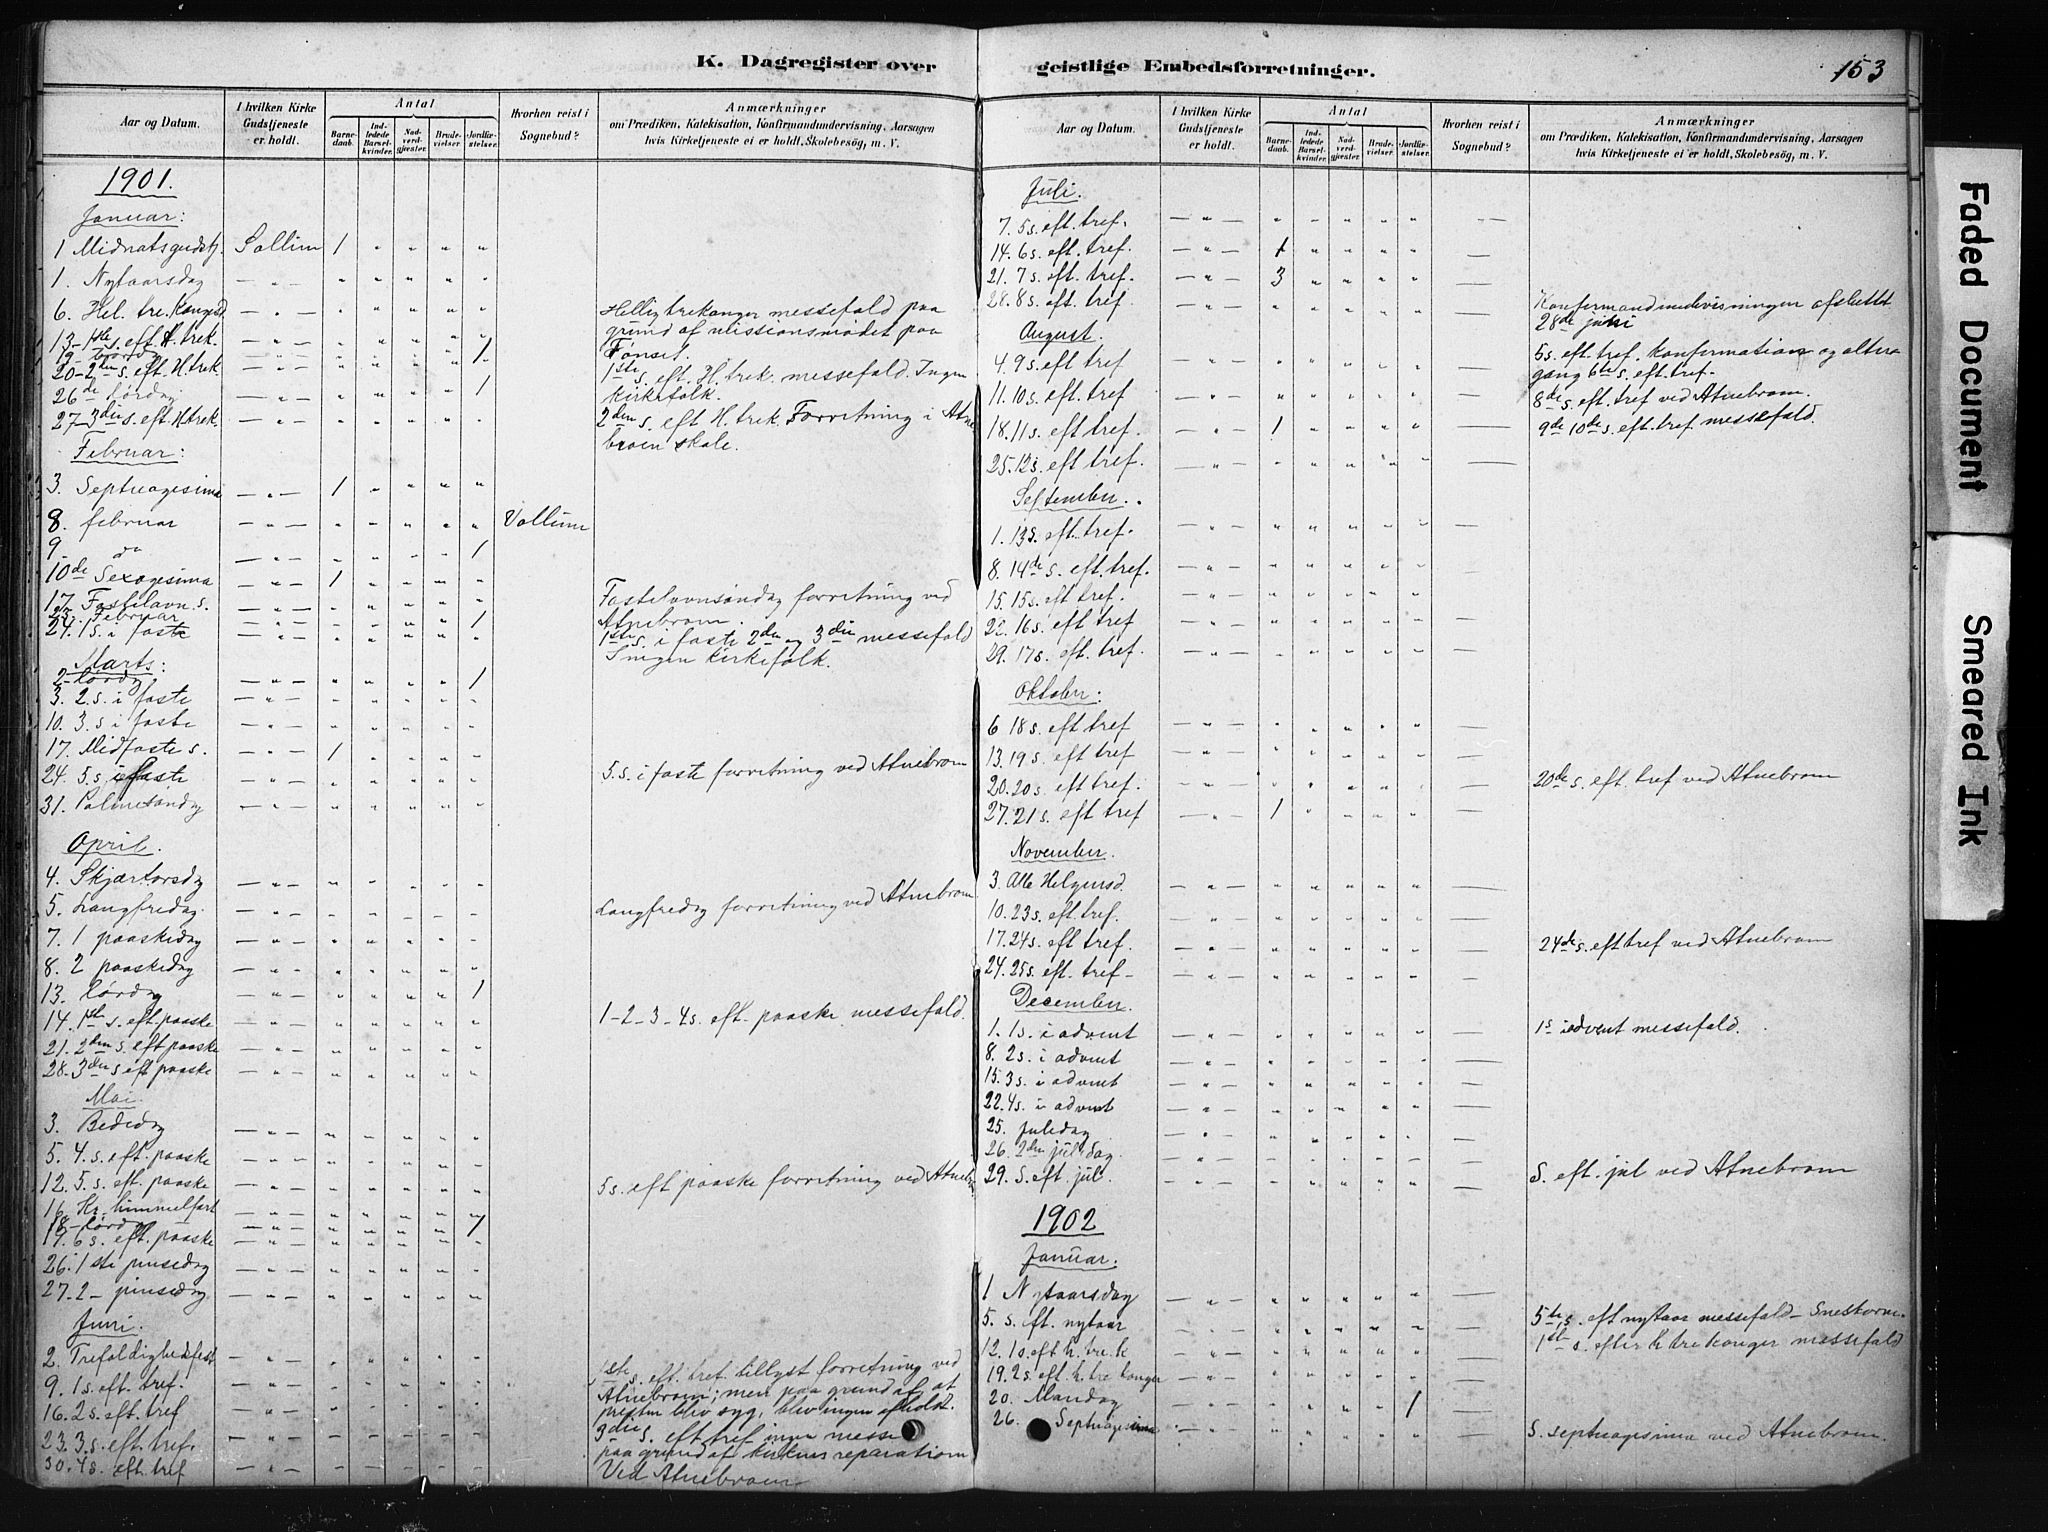 K. Dagregister over geistlige Embedsforretninger.
153
Aar og Datum.
I hvilken Kirke Gudstjeneste er holdt.
Antal
Barnedaab.
Indledede Barselkvinder.
Nadverdgjester.
Brudevielser.
Jordfæstelser.
Hvorhen reist i Sognebud?
Anmærkninger
om Prædiken, Katekisation, Konfirmandundervisning, Aarsagen
hvis Kirketjeneste ei er holdt, Skolebesög, m. V.
1901.
Januar:
1 Midnatsgudstj. Sollim 1 " " " "
1. Nytaarsdag — " — " " " " "
6. Hel. tre. Kongesd — " — " " " " " Helligtrekonger messefald paa
grund af missionsmødet paa
13-1ste s. eft. H. trek. — " — " " " " "
Tønset.
19- Lørdag — " — " " " " 1
20-2den s. eft. H. trek — " — " " " " " 1ste s. eft. H. trek. messefald. Ingen
kirkefolk.
26de Lørdag — " — " " " " 1
27-3die s. eft. H. trek. — " — " " " " " 2den s. eft H. trek. Forretning i Atne
broen skole.
Februar:
3. Septuagesima — " — 1 " " " "
8. februar — " — " " " " " Vollum
9 do — " — " " " " 1
10de Sexagesima — " — 1 " " " "
17. Fastelavn. s. — " — " " " " " Fastelavnsøndag forretning ved
Atnebroen.
23. Februar — " — " " " " 1
24. 1s. i faste — " — " " " " " 1ste s. i faste 2den og 3die messefald
Ingen kirkefolk.
Marts:
2- Lørdg — " — " " " " 1
3. 2. s. i faste — " — " " " " "
10. 3. s i faste — " — " " " " "
17. Midfaste s. — " — 1 " " " "
24. 5. s. i faste — " — " " " " " 5. s. i faste forretning ved Atnebroen
31. Palmesøndag — " — " " " " "
April.
4. Skjærtorsdg — " — " " " " "
5. Langfredag. — " — " " " " " Langfredag forretning ved Atnebroen
7. 1 paaskedag — " — " " " " "
8. 2 paaskedag — " — " " " " "
13. Lørdag — " — " " " " 1
14. 1ste s. eft. paaske — " — " " " " " 1-2-3-4s. eft. paaske messefald.
21. 2den s. eft paaske — " — " " " " "
28. 3die s eft paaske — " — " " " " "
Mai.
3. Bededag — " — " " " " "
5. 4. s. eft. paaske — " — " " " " "
12. 5. s. eft. paaske — " — " " " " " 5 s. eft paaske forretning ved Atnebr
16. Kr. himmelfart — " — " " " " "
18- Lørdag — " — " " " " 1
19. 6 s. eft. paaske — " — " " " " "
26. 1ste pinsedag — " — " " " " "
27. 2- pinsedag — " — " " " " "
Juni.
2. Trefoldighedsfest — " — " " " " "
9. 1s. eft. tref. — " — " " " " " 1ste s. eft. tref. tillyst forretning ved
Atnebroen; men paa grund af, at
16. 2 s. eft. tref — " — " " " " " presten blev syg, blev ingen afholdt.
23. 3. s. eft. tref. — " — " " " " " 3die s. eft tref ingen messe
paa grund af kirkens reparation
30. 4s. eft. tref — " — " " " " " Ved Atnebroen
Aar og Datum.
I hvilken Kirke Gudstjeneste er holdt.
Antal
Barnedaab.
Indledede Barselkvinder.
Nadverdgjester.
Brudevielser.
Jordfæstelser.
Hvorhen reist i Sognebud?
Anmærkninger
om Prædiken, Katekisation, Konfirmandundervisning, Aarsagen
hvis Kirketjeneste ei er holdt, Skolebesög, m. V.
Juli.
7. 5s. eft. tref. — " — " " " " " —
14. 6s. eft. tref. — " — 1 " " " " —
21. 7s. eft. tref. — " — 3 " " " " —
28. 8s. eft. tref — " — " " " " " — Konfirmandundervisningen afsluttet
28de juni
August.
4. 9s. eft tref — " — " " " " " — 5s. eft. tref. Konfirmation og alter
gang 6te s. eft. tref.
11. 10s. eft tref — " — " " " " " — 8de s. eft. tref ved Atnebroen.
18. 11s. eft tref. — " — 1 " " " " — 9de 10de s. eft. tref. messefald.
25. 12s. eft tref. — " — " " " " " —
September.
1. 13s. eft. tref. — " — " " " " " —
8. 14de s. eft. tref. — " — " " " " " —
15. 15s. eft tref. — " — " " " " " —
22. 16s. eft tref — " — " " " " " —
29. 17s. eft. tref. — " — " " " " " —
Oktober:
6 18s. eft tref — " — " " " " " —
13. 19s. eft tref — " — " " " " " —
20. 20s. eft tref. — " — " " " " " — 20de s. eft. tref ved Atnebroen
27. 21s. eft tref — " — 1 " " " " —
November.
3. Alle Helgensd. — " — " " " " " —
10. 23s. eft. tref. — " — " " " " " —
17. 24s. eft tref. — " — " " " " " — 24de s. eft tref ved Atnebroen
24. 25s. eft. tref- — " — " " " " " —
December.
1. 1s. i advent — " — " " " " " — 1s i advent messefald.
8. 2s. i advent — " — " " " " " —
15. 3s. i advent — " — " " " " " —
22. 4s. i advent — " — " " " " " —
25. juledag — " — " " " " " —
26. 2den juledag. — " — " " " " " —
29. S. eft. jul. — " — " " " " " — S. eft. jul ved Atnebroen
1902
Januar.
1 Nytaarsdag — " — " " " " " —
5. s. eft. nytaar — " — " " " " " — 5te s. eft nytaar messefald- Snestorm.
12. 1s. eft h. trek — " — " " " " " — 1ste s. efter h trekonger messefald
19. 2s. eft. h. trekonger — " — " " " " " —
20. Mandag — " — " " " " 1 —
26. Septuagesima — " — " " " " " — S. septuagesima ved Atnebroen.
Faded Document
Smeared Ink